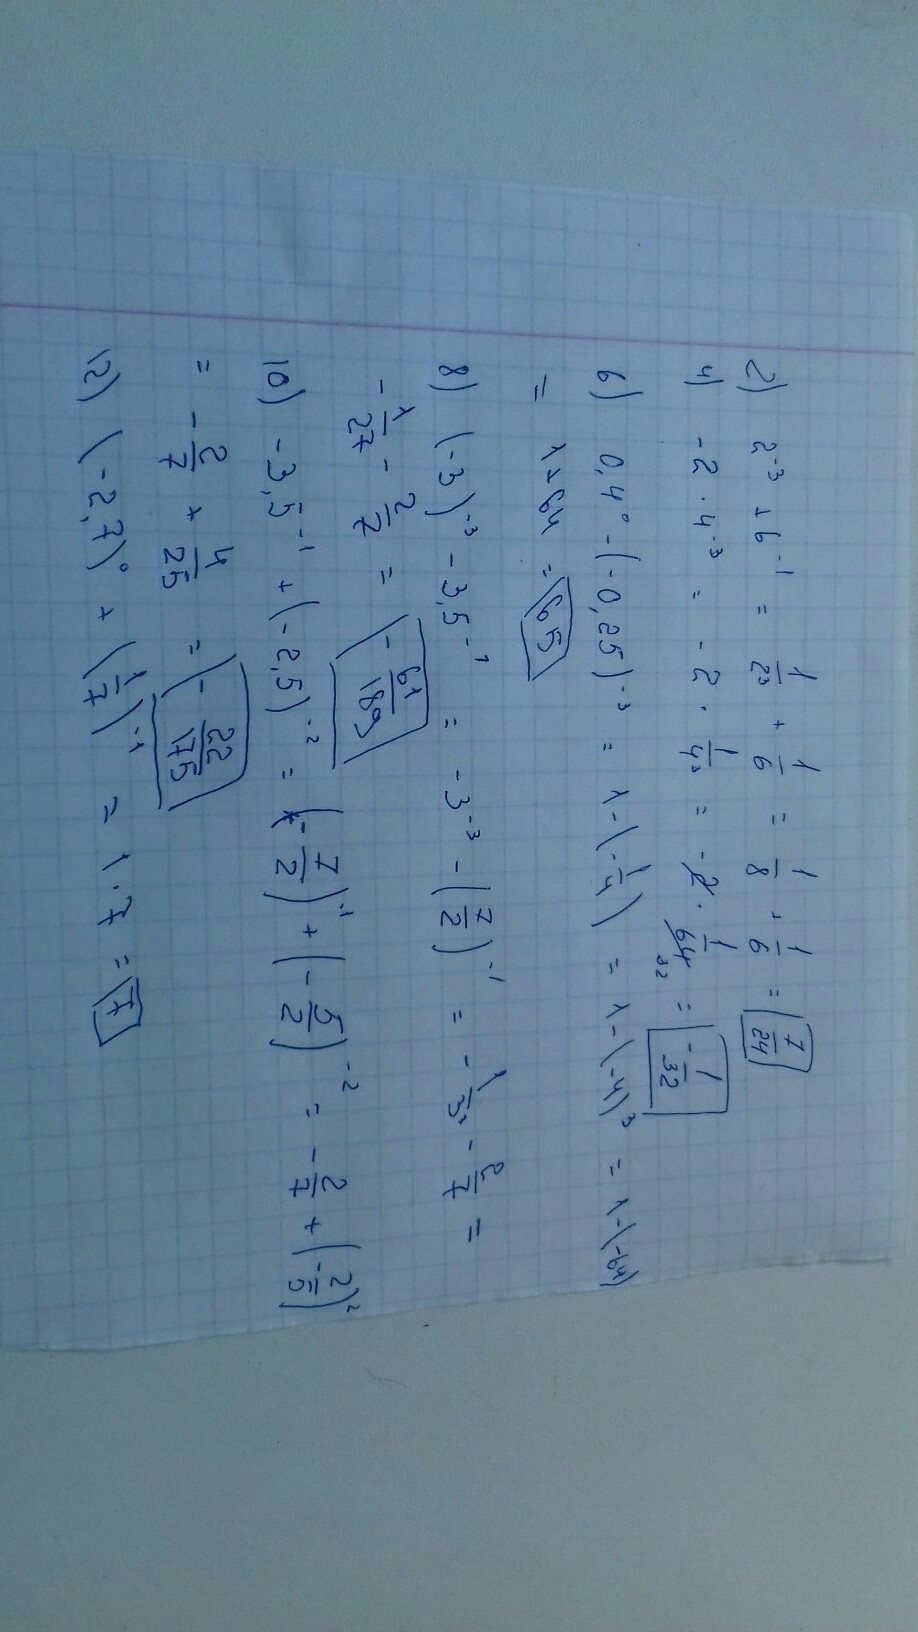 2) 2⁻³ + 6⁻¹ = 1/2³ + 1/6 = 1/8 + 1/6 = 7/24
4) -2 · 4⁻³ = -2 · 1/4³ = -2 · 1/64 32 = -1/32
6) 0,4⁰ - (-0,25)⁻³ = 1 - (-1/4) = 1 - (-4)³ = 1 - (-64)
= 1 + 64 = 65
8) (-3)⁻³ - 3,5⁻¹ = -3⁻³ - (7/2)⁻¹ = -1/3³ - 2/7 =
-1/27 - 2/7 = -61/189
10) -3,5⁻¹ + (-2,5)⁻² = (-7/2)⁻¹ + (-5/2)⁻² = -2/7 + (-2/5)²
= -2/7 + 4/25 = -22/175
12) (-2,7)⁰ + (1/7)⁻¹ = 1 · 7 = 7